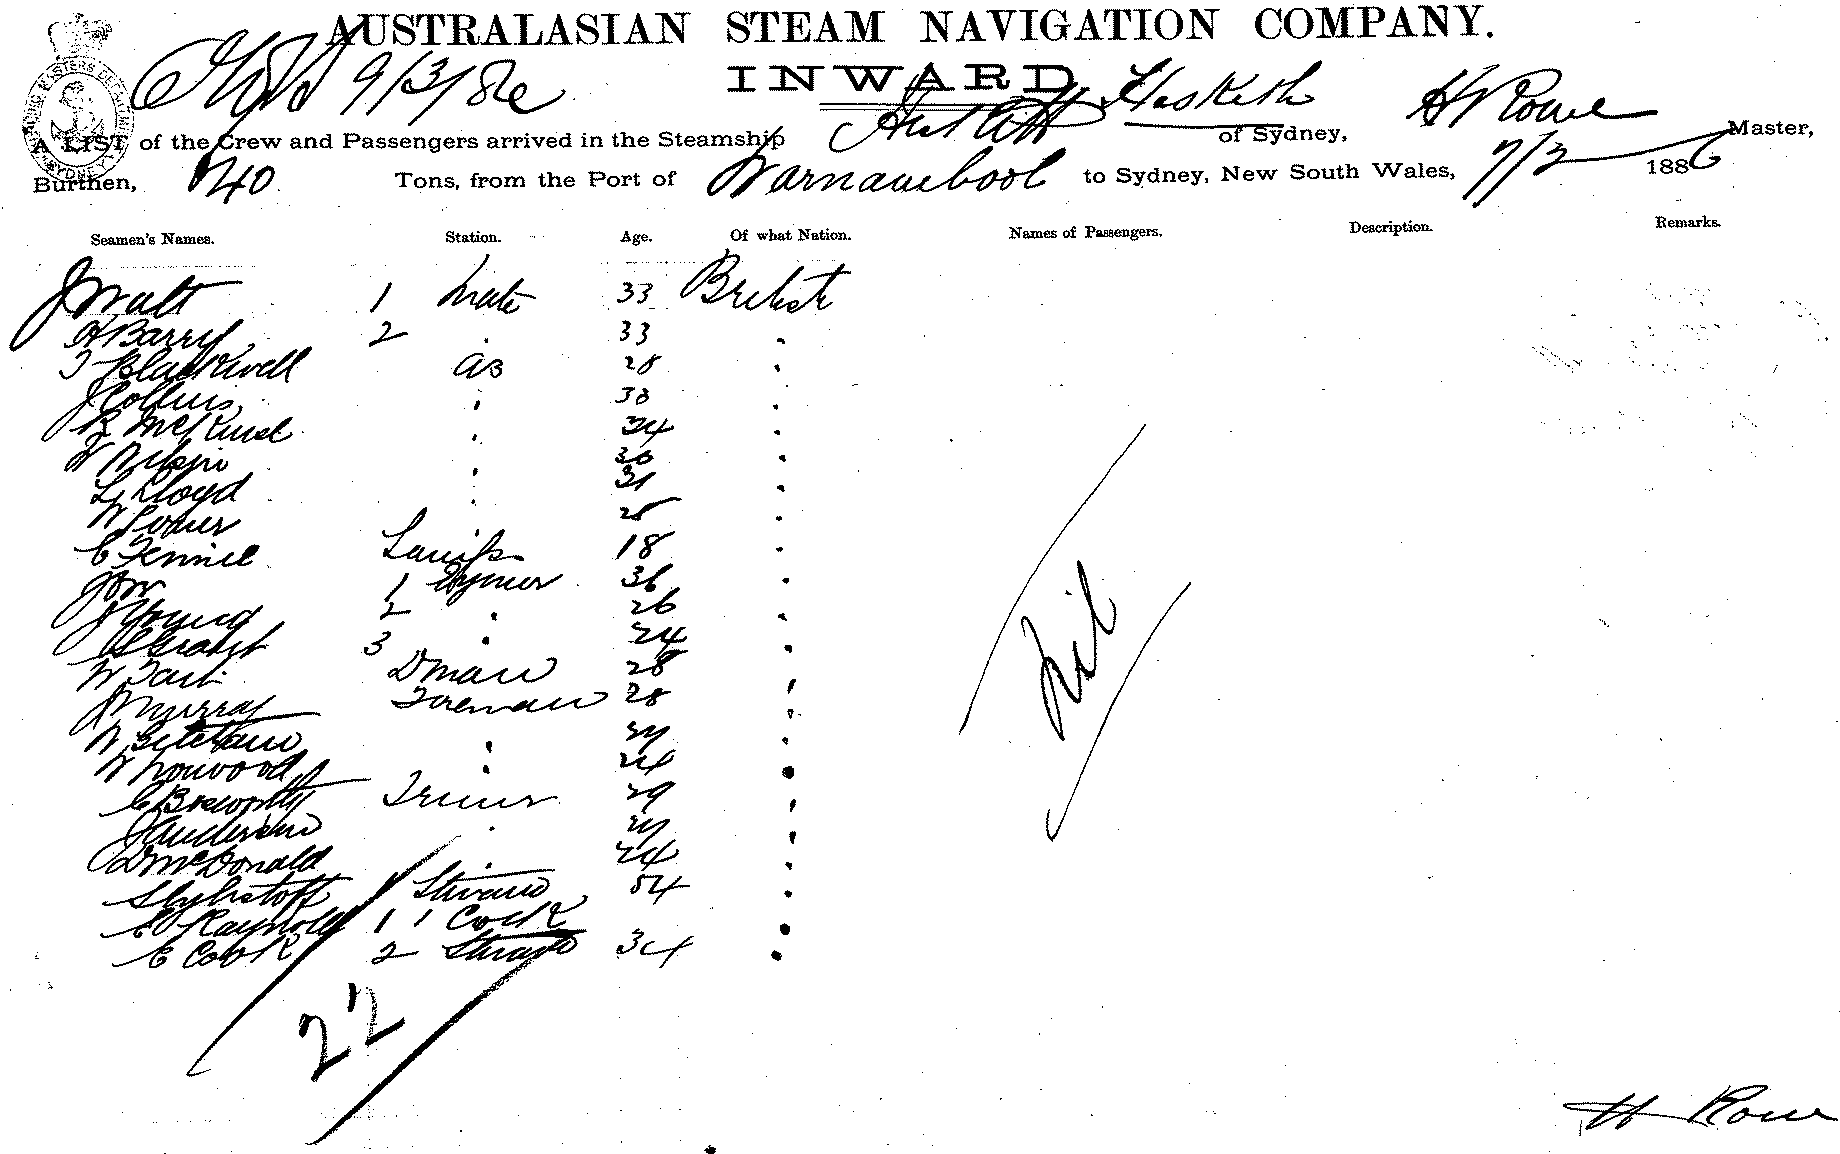 AUSTRALASIAN STEAM NAVIGATION COMPANY.
9/3/86
INWARD
Hesketh
H Rowe
A LIST of the Crew and Passengers arrived in the Steamship of Sydney, Master,
Burthen, 640 Tons, from the Port of Warnambool to Sydney, New South Wales, 7/3 1886
Seamen's Names. Station. Age. Of what Nation. Names of Passengers. Description. Remarks.
J Watt 1 Mate 33 British
H Barry 2 33
T Blackwell AB 28
J Collins 30
34
W Nelson 30
Lloyd 31
W 25
C Fennie Lamps 18
1 36
J Young 2 26
Grant 3 24
W Tait Dman 28
J Murray Foreman 28
W 27
W Norwood 24
C Bosworth Trimr 29
J Anderson 27
D McDonald 24
Steward 54
1 1 Cook
C Cook 2 Steward 34
Nil
22
H Rowe